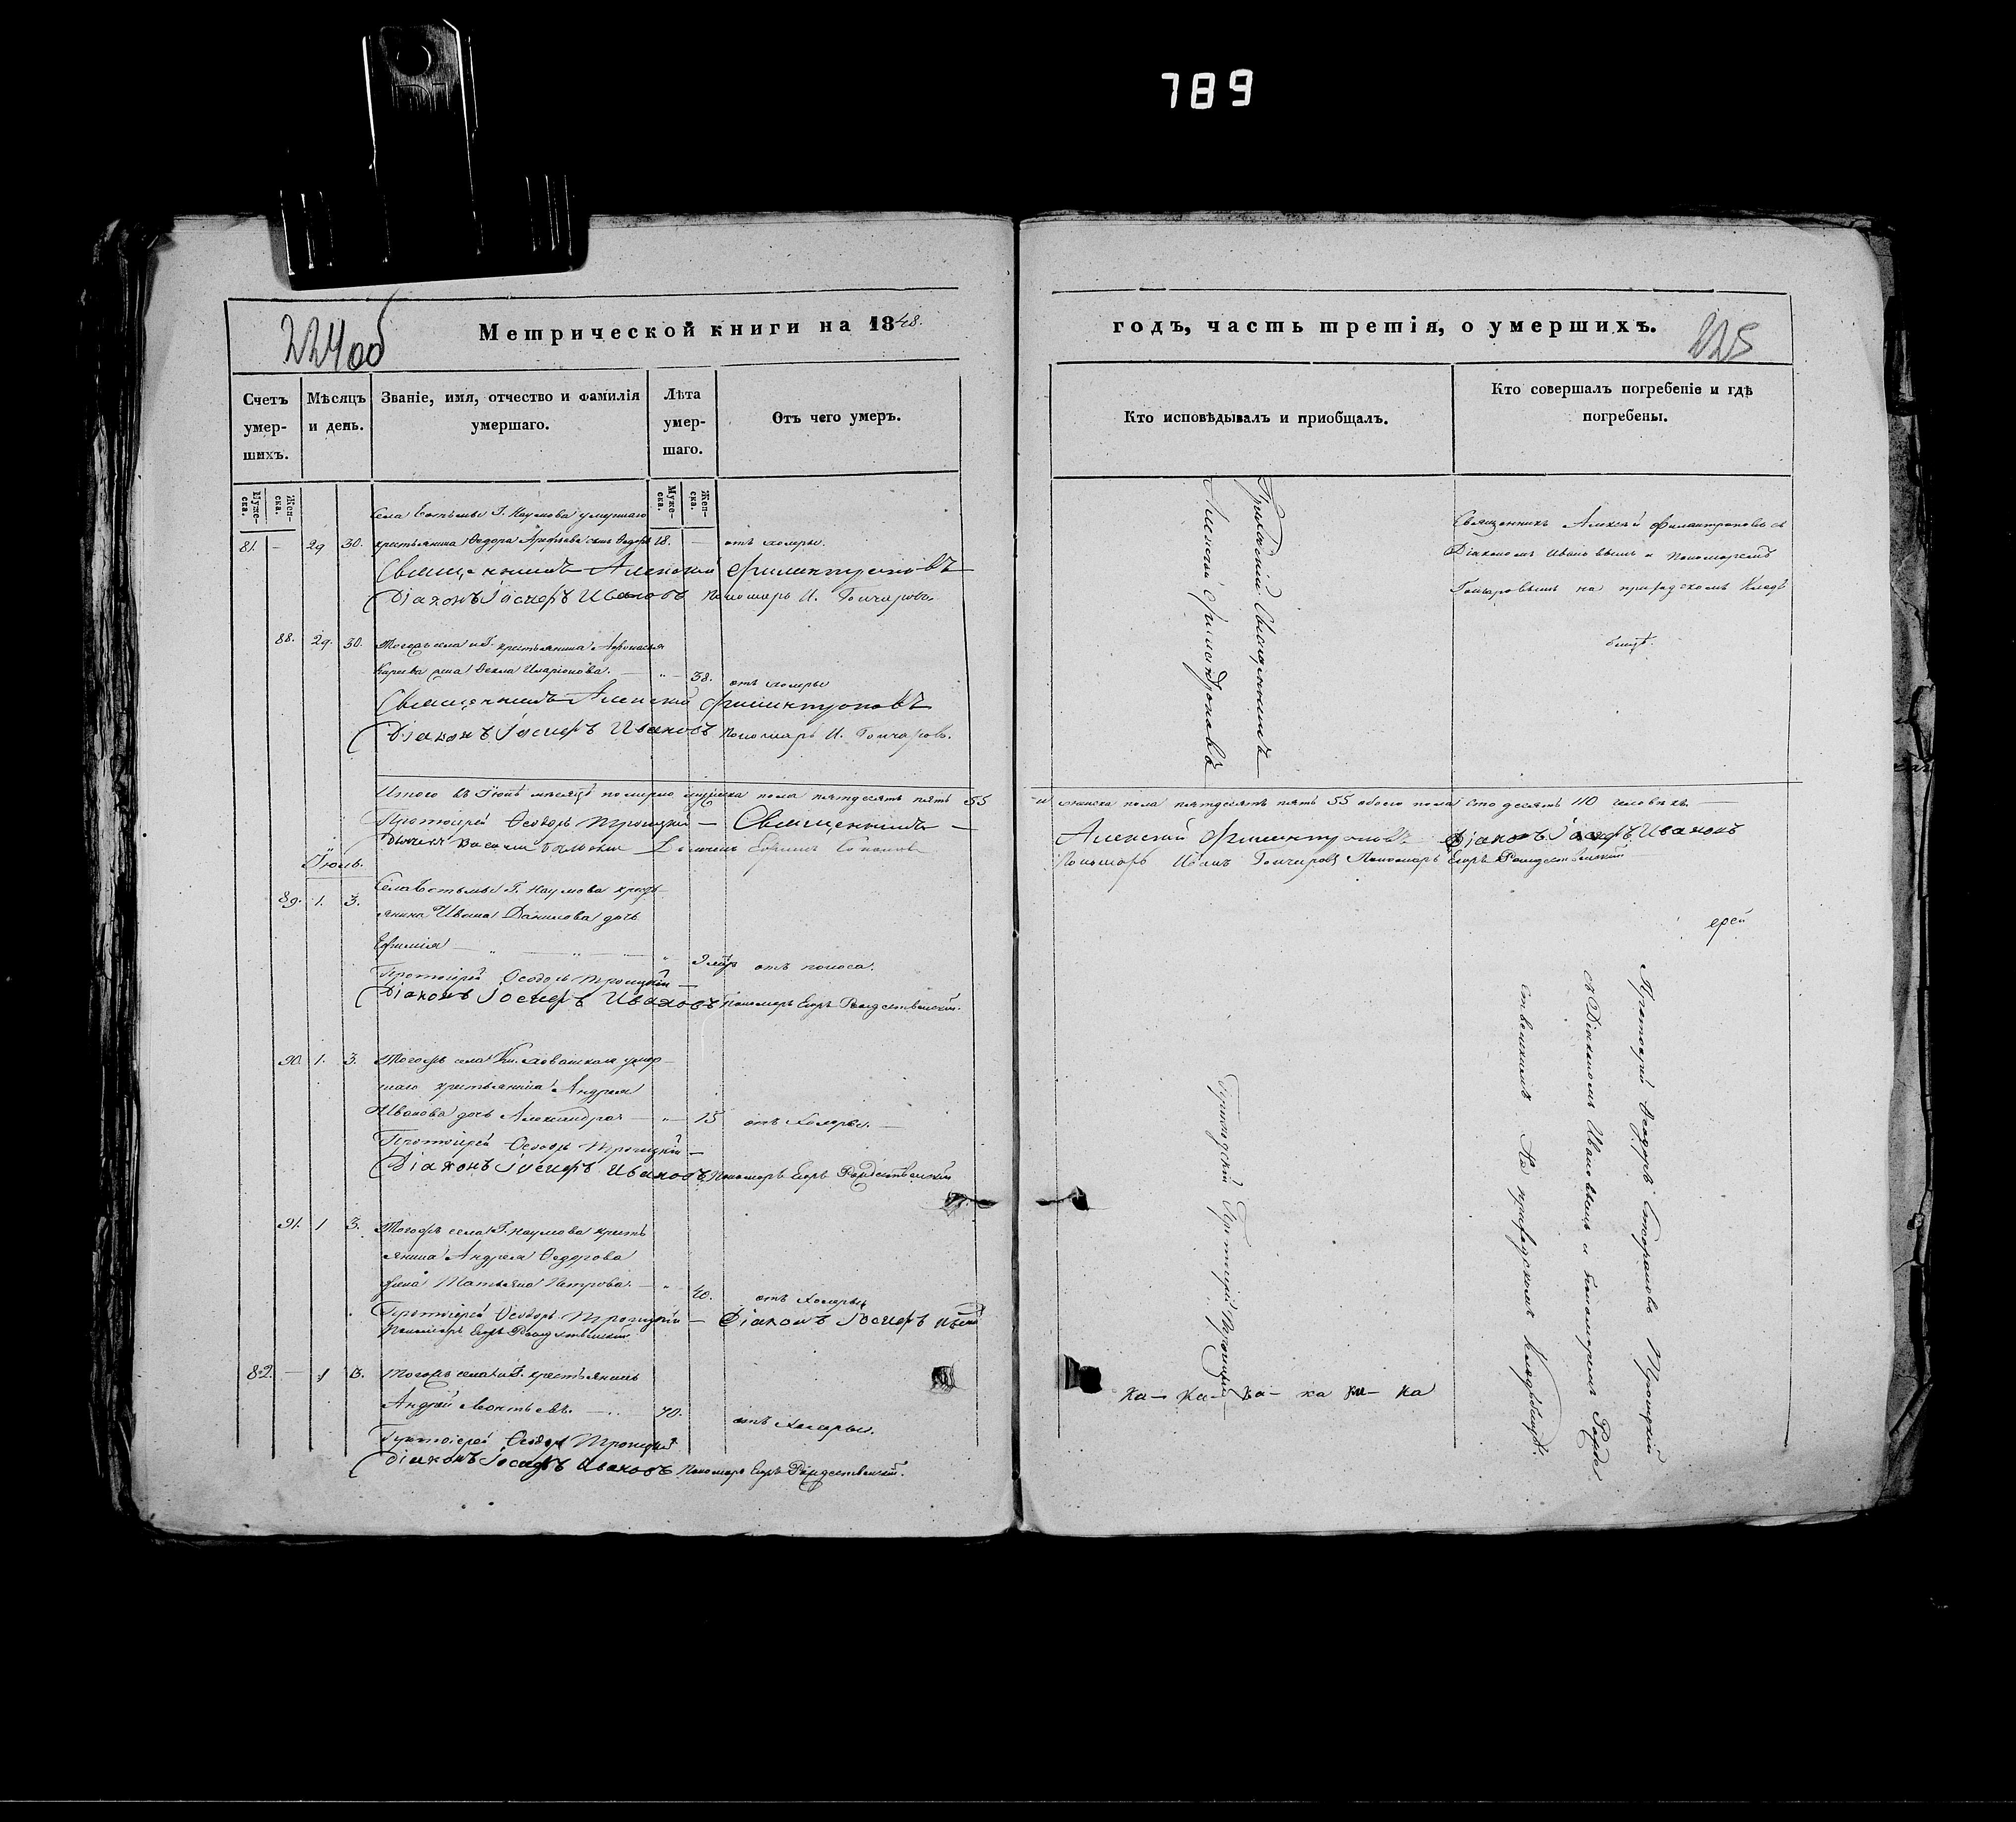 789
224об
Метрической книги на 1848.
Счетъ умер-шихъ.
Мѣсяцъ и день.
Званіе, имя, отчество и фамилія умершаго.
Лѣта умер-шаго.
Отъ чего умеръ.
Муже-ска.
Жен-ска.
Муже-ска.
Жен-ска.
Села Г. Наумова умершаго
81. — 29 30. крестьянина Ѳедора сынъ Ѳедоръ 18. — отъ холеры.
Священникъ Алексѣй Филантроповъ
Діаконъ Іосифъ Ивановъ Пономарь И. Гончаровъ.
88. 29. 30. Тогожъ села и Г. крестьянина Афонасья
Карпова жена Ѳекла Иларіонова. — 38. отъ холеры
Священникъ Алексѣй Филантроповъ
Діаконъ Іосифъ Ивановъ Пономарь И. Гончаровъ.
Итого въ Іюнѣ мѣсяцѣ померло мужеска пола пятдесятъ пять 55
Протоіерей Ѳеодоръ Троицкій — Священникъ —
Іюль.
89. 1. 3. Села Г. Наумова кресть-
янина Ивана Данилова дочь
Ефимія — отъ поноса.
Протоіерей Ѳеодоръ Троицкій —
Діаконъ Іосифъ Ивановъ Пономарь Егоръ Рождественскій.
90. 1. 3. Тогожъ села Кн. Хованской умер-
шаго крестьянина Андрея
Иванова дочь Александра — 15 отъ холеры. —
Протоіерей Ѳеодоръ Троицкій —
Діаконъ Іосифъ Ивановъ Пономарь Егоръ Рождественскій
91. 1 3. Тогожъ села Г. Наумова кресть
янина Андрея Ѳедорова
жена Татьяна Петрова. — 40. отъ холеры
Протоіерей Ѳеодоръ Троицкій — Діаконъ Іосифъ
Пономарь Егоръ Рождественскій
82. — 1 3. Тогожъ села и Г. крестьянинъ
Андрей Леонтьевъ. — 40. отъ холеры.
Протоіерей Ѳеодоръ Троицкій
Діаконъ Іосифъ Ивановъ Пономарь Егоръ Рождественскій.
годъ, часть третія, о умершихъ.
225
Кто исповѣдывалъ и приобщалъ.
Кто совершалъ погребеніе и гдѣ погребены.
Приходскій Священникъ
Алексѣй Филантроповъ
Священникъ Алексѣй Филантроповъ съ
Діакономъ Ивановымъ и Пономаремъ
Гончаровымъ на приходскомъ Кладъ
бищѣ.
и женска пола пятдесятъ пять 55 обоего пола сто десять 110 человѣкъ —
Алексѣй Филантроповъ Діаконъ Іосифъ Ивановъ
Пономарь Иванъ Гончаровъ Пономарь Егоръ Рождественскій
ерей
Приходскій Протоіерей Троицкій
Протоіерей Ѳеодоръ Троицкій
съ Діакономъ Ивановымъ и Пономаремъ Рожде
ственскимъ На приходскомъ Кладбищѣ.
ка — ка — ка — ка ка — ка